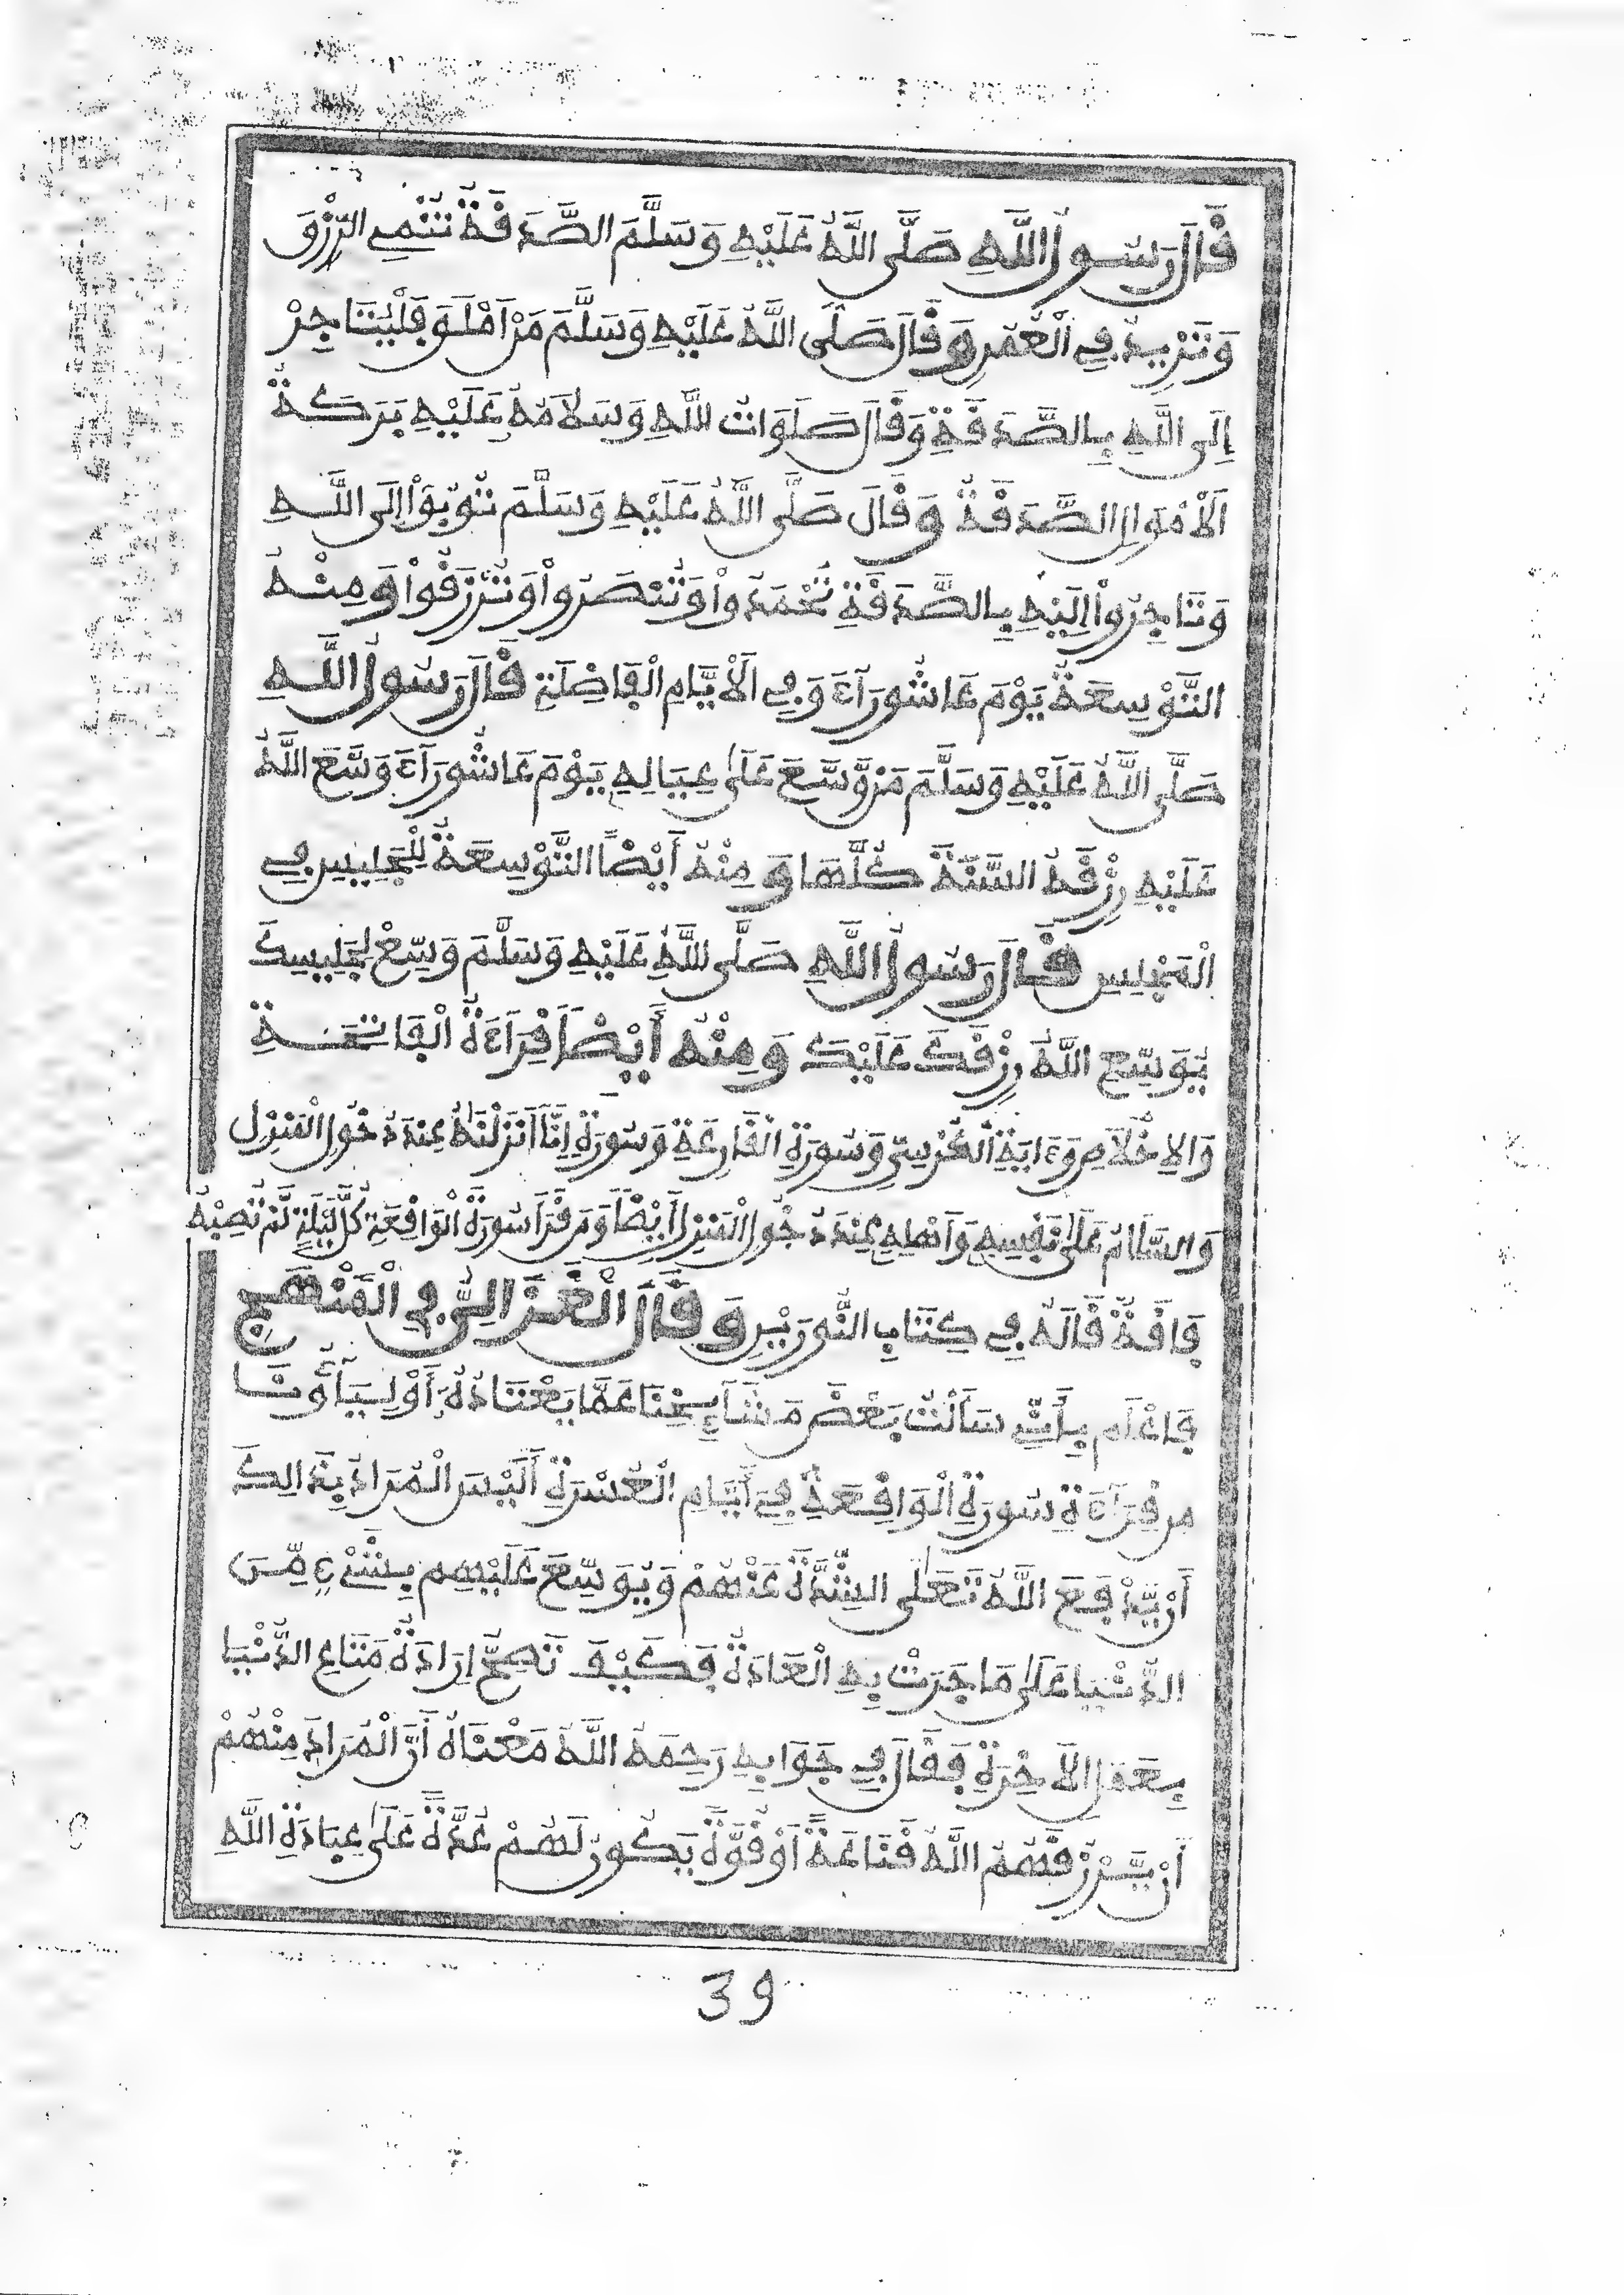 قَالَ رَسُولُ اللَّهِ صَلَّى اللَّهُ عَلَيْهِ وَسَلَّمَ الصَّدَقَةُ تُنْمِي الرِّزْقَ
وَتَزِيدُ فِي الْعُمْرِ وَقَالَ صَلَّى اللَّهُ عَلَيْهِ وَسَلَّمَ مَنْ اَمْلَقَ فَلْيُتَاجِرْ
إِلَى اللَّهِ بِالصَّدَقَةِ وَقَالَ صَلَوَاتُ اللَّهِ وَسَلَامُهُ عَلَيْهِ بَرَكَةُ
اَلْاَمْوَالِ الصَّدَقَةُ وَقَالَ صَلَّى اللَّهُ عَلَيْهِ وَسَلَّمَ تُوبُوا إِلَى اللَّهِ
وَتَاجِرُوا إِلَيْهِ بِالصَّدَقَةِ تُحْمَدُوا وَتُنْصَرُوا وَتُرْزَقُوا وَمِنْهُ
التَّوْسِعَةُ يَوْمَ عَاشُورَآءَ وَفِي اَلْاَيَّامِ الْفَاضِلَةِ قَالَ رَسُولُ اللَّهِ
صَلَّى اللَّهُ عَلَيْهِ وَسَلَّمَ مَنْ وَّسَّعَ عَلَى عِيَالِهِ يَوْمَ عَاشُورَآءَ وَسَّعَ اللَّهُ
عَلَيْهِ رِزْقَهُ السَّنَةَ كُلَّهَا وَمِنْهُ أَيْضًا التَّوْسِعَةُ لِلْجَلِيسِ فِي
الْمَجْلِسِ قَالَ رَسُولُ اللَّهِ صَلَّى اللَّهُ عَلَيْهِ وَسَلَّمَ وَسِّعْ لِجَلِيسِكَ
يُوَسِّعِ اللَّهُ رِزْقَكَ عَلَيْكَ وَمِنْهُ أَيْضًا قِرَآءَةُ الْفَاتِحَةِ
وَالاِخْلَاصِ وَءَايَةِ الْكُرْسِيِّ وَسُورَةِ الْقَارِعَةِ وَسُورَةِ إِنَّا أَنْزَلْنَاهُ عِنْدَ دُخُولِ الْمَنْزِلِ
وَالسَّلَامُ عَلَى نَفْسِهِ وَأَهْلِهِ عِنْدَ دُخُولِ الْمَنْزِلِ أَيْضًا وَمَن قَرَأَ سُورَةَ الْوَاقِعَةِ كُلَّ لَيْلَةٍ لَّمْ تُصِبْهُ
فَاقَةٌ قَالَهُ فِي كِتَابِ النُّورَيْنِ وَقَالَ الْغَزَالِيُّ فِي الْمَنْهَجِ
فَاعْلَم بِأَنِّي سَأَلْتُ بَعْضَ مَشَآئِخِنَا عَمَّا يَعْتَادُهُ أَوْلِيَآؤُنَا
مِن قِرَآءَةِ سُورَةِ الْوَاقِعَةِ فِي أَيَّامِ الْعُسْرَةِ أَلَيْسَ الْمُرَادُ بِذَالِكَ
أَنْ يَّدْفَعَ اللَّهُ تَعَلَى الشِّدَّةَ عَنْهُمْ وَيُوَسِّعَ عَلَيْهِم بِشَيْءٍ مِّنَ
الدُّنْيَا عَلَى مَا جَرَتْ بِهِ الْعَادَةُ فَكَيْفَ تَصِحُّ إِرَادَةُ مَتَاعِ الدُّنْيَا
بِعَمَلِ الاَخِرَةِ فَقَالَ فِي جَوَابِهِ رَحِمَهُ اللَّهُ مَعْنَاهُ أَنَّ الْمُرَادَ مِنْهُمْ
أَنْ يَّرْزُقَهُمُ اللَّهُ قَنَاعَةً اَوْ قُوَّةً يَكُونُ لَهُمْ عُدَّةً عَلَى عِبَادَةِ اللَّهِ
39